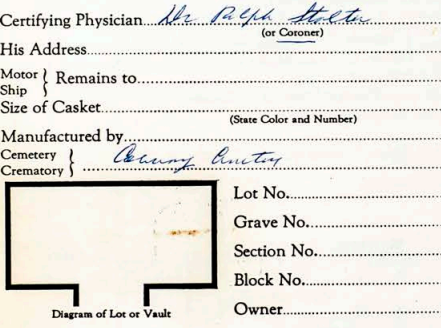 Certifying Physician Dr Ralph Stolte
(or Coroner)
His Address
Motor
Ship } Remains to
Size of Casket
(State Color and Number)
Manufactured by
Cemetery
Crematory }
Lot No.
Grave No.
Section No.
Block No.
Owner
Diagram of Lot or Vault